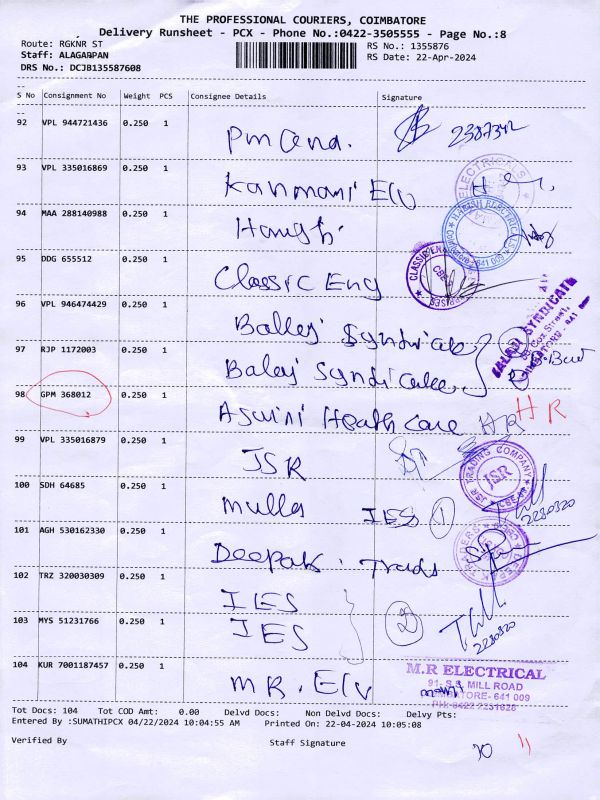 THE PROFESSIONAL COURIERS, COIMBATORE
Delivery Runsheet - PCX - Phone No.:0422-3505555 - Page No.:8
Route: RGKNR ST RS No.: 1355876
Staff: ALAGAPPAN RS Date: 22-Apr-2024
DRS No.: DCJB135587608
S No Consignment No Weight PCS Consignee Details Signature
92 VPL 944721436 0.250 1
93 VPL 335016869 0.250 1 Kanmani
94 MAA 288140988 0.250 1
95 DDG 655512 0.250 1 Classic Eng
96 VPL 946474429 0.250 1
97 RJP 1172003 0.250 1
BALAJI SYNDICATE
98 GPM 368012 0.250 1 Aswini Heath Care HR HR
99 VPL 335016879 0.250 1 JSR
JSR TRADING COMPANY
JSR
100 SDH 64685 0.250 1 Mulla IES 1
2230320
101 AGH 530162330 0.250 1 Deepak. Trads
102 TRZ 320030309 0.250 1 IES
103 MYS 51231766 0.250 1 IES 2
2230320
104 KUR 7001187457 0.250 1 MR. Elv
M.R ELECTRICAL
MILL ROAD
641 009
Tot Docs: 104 Tot COD Amt: 0.00 Delvd Docs: Non Delvd Docs: Delvy Pts:
Entered By :SUMATHIPCX 04/22/2024 10:04:55 AM Printed On: 22-04-2024 10:05:08
Verified By Staff Signature